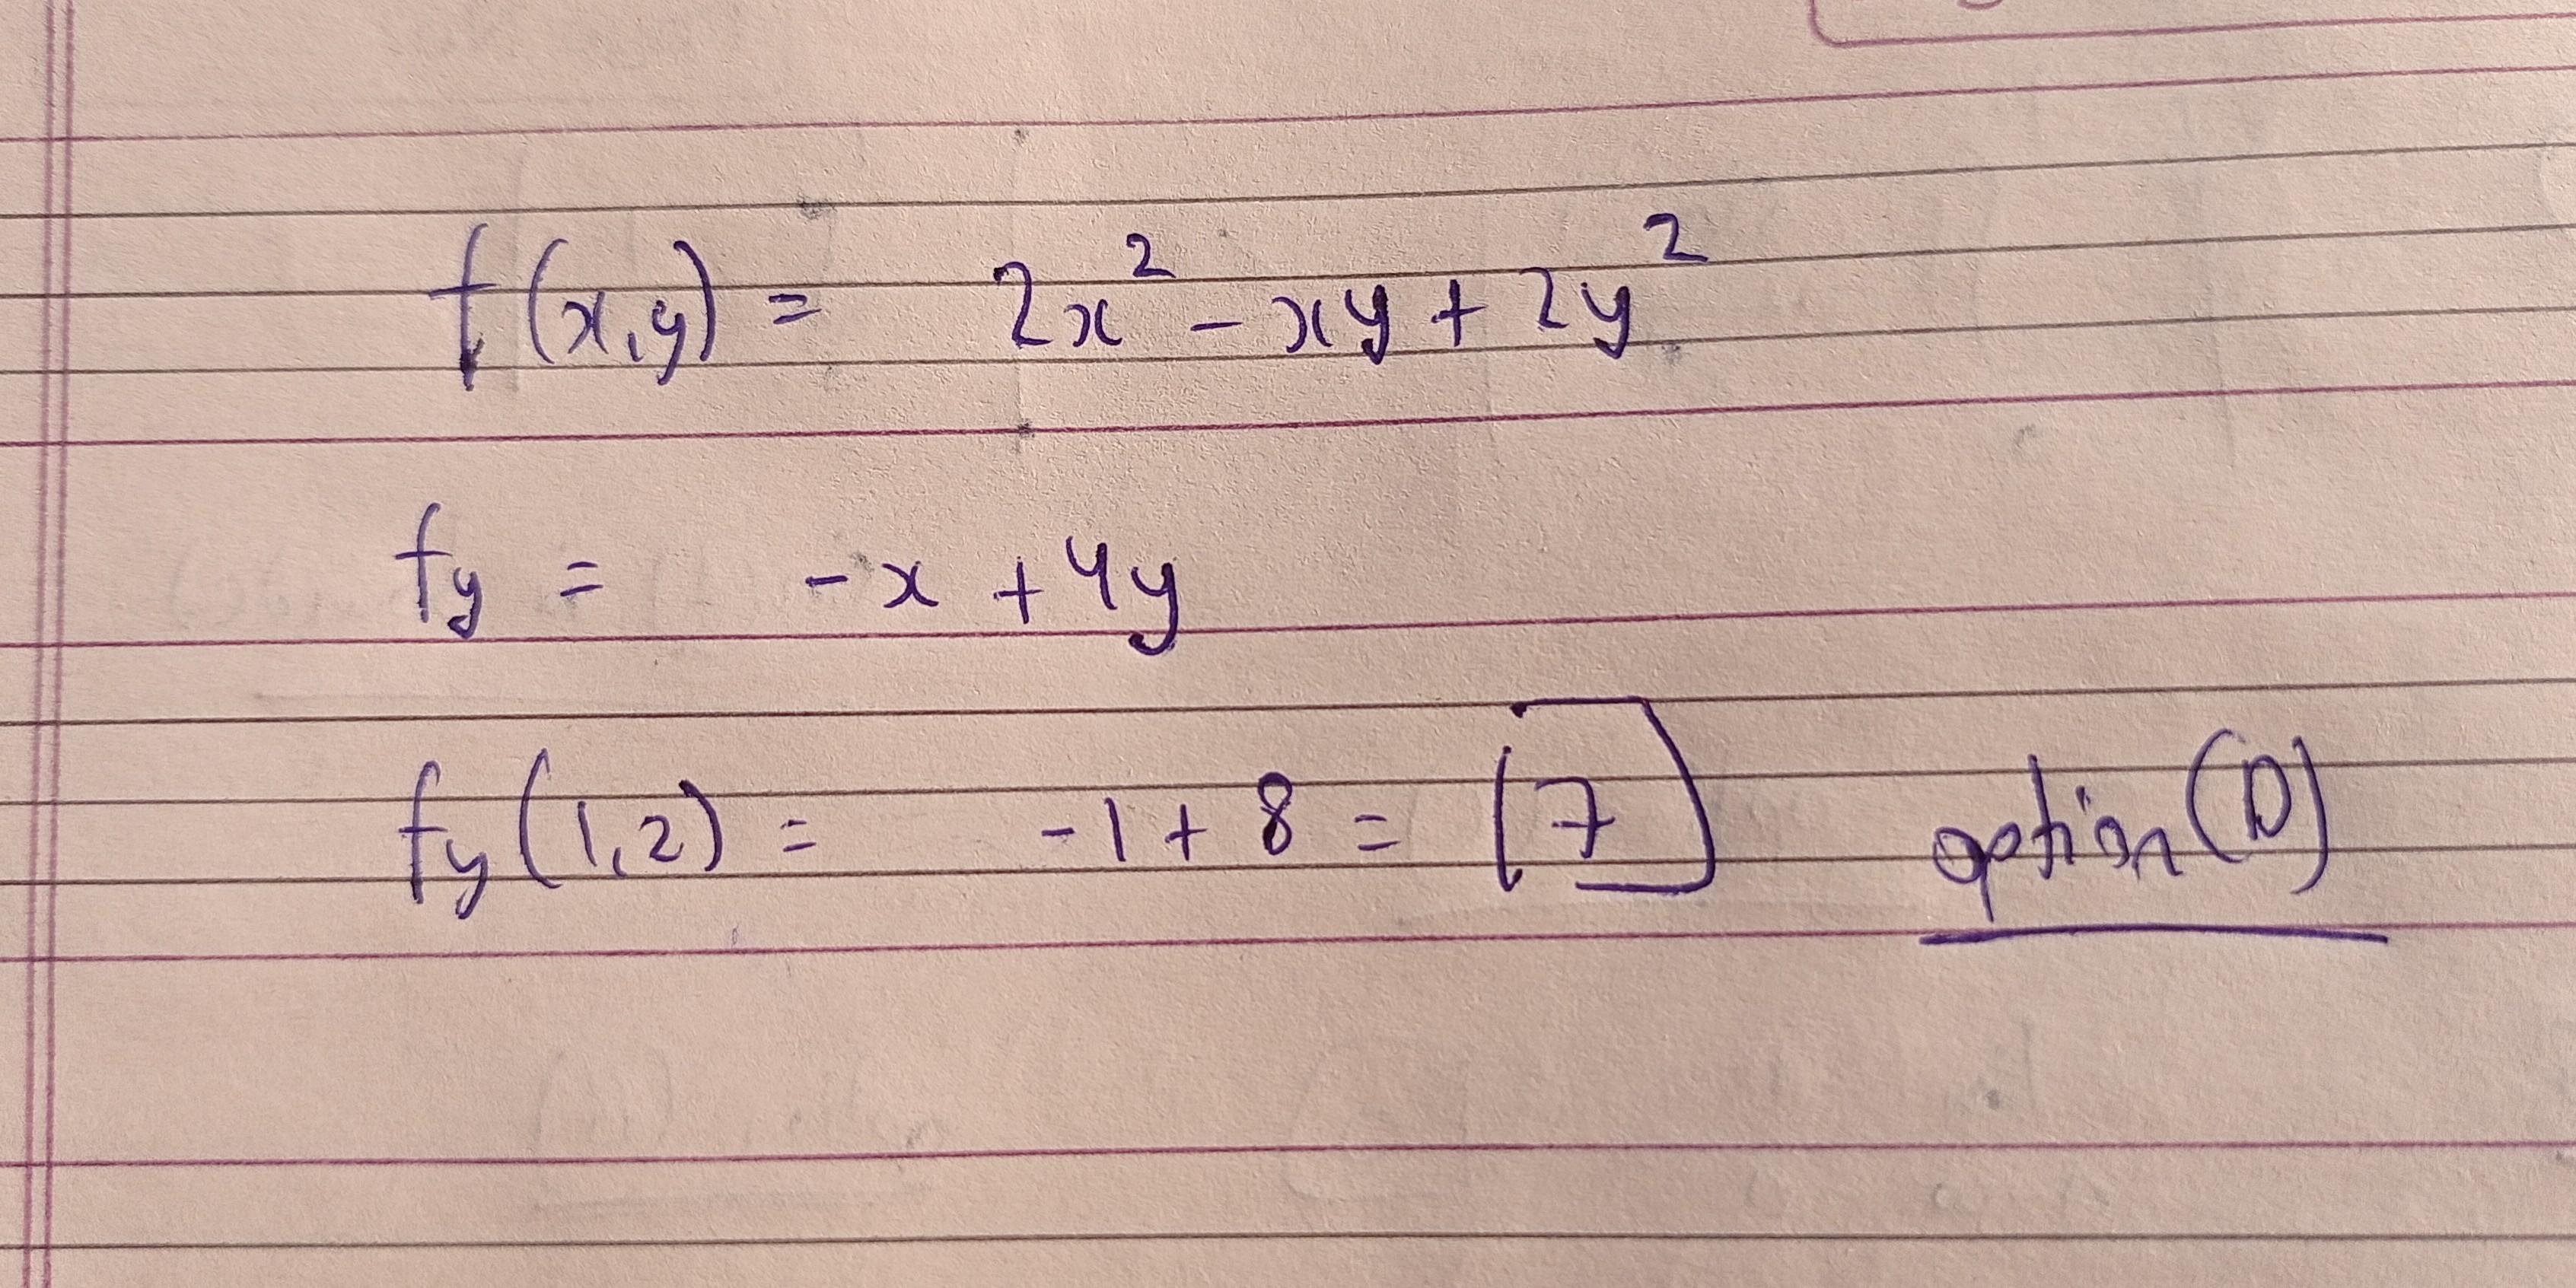 f(x,y) = 2x² - xy + 2y²
fy = -x + 4y
fy(1,2) = -1 + 8 = [7] option(D)